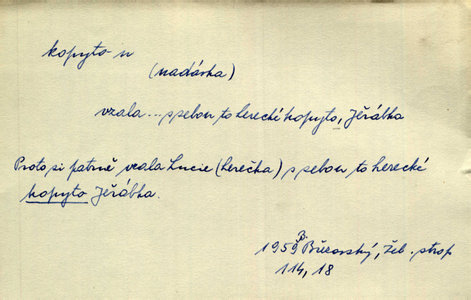 kopyto n
(nadávka)
vzala ... s sebou to herecké kopyto, Jeřábka
Proto si patrně vzala Lucie (herečka) s sebou to herecké
kopyto Jeřábka.
1959 B. Březovský, Žel. strop
114, 18